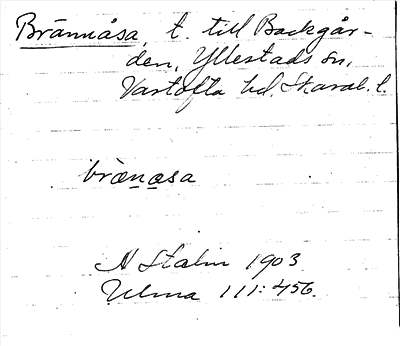 Brännåsa, t. till Backgår-
den, Yllestads sn,
Vartofta hd. Skarab. l.
bränasa
N Stalin 1903
Ulma 111:456.